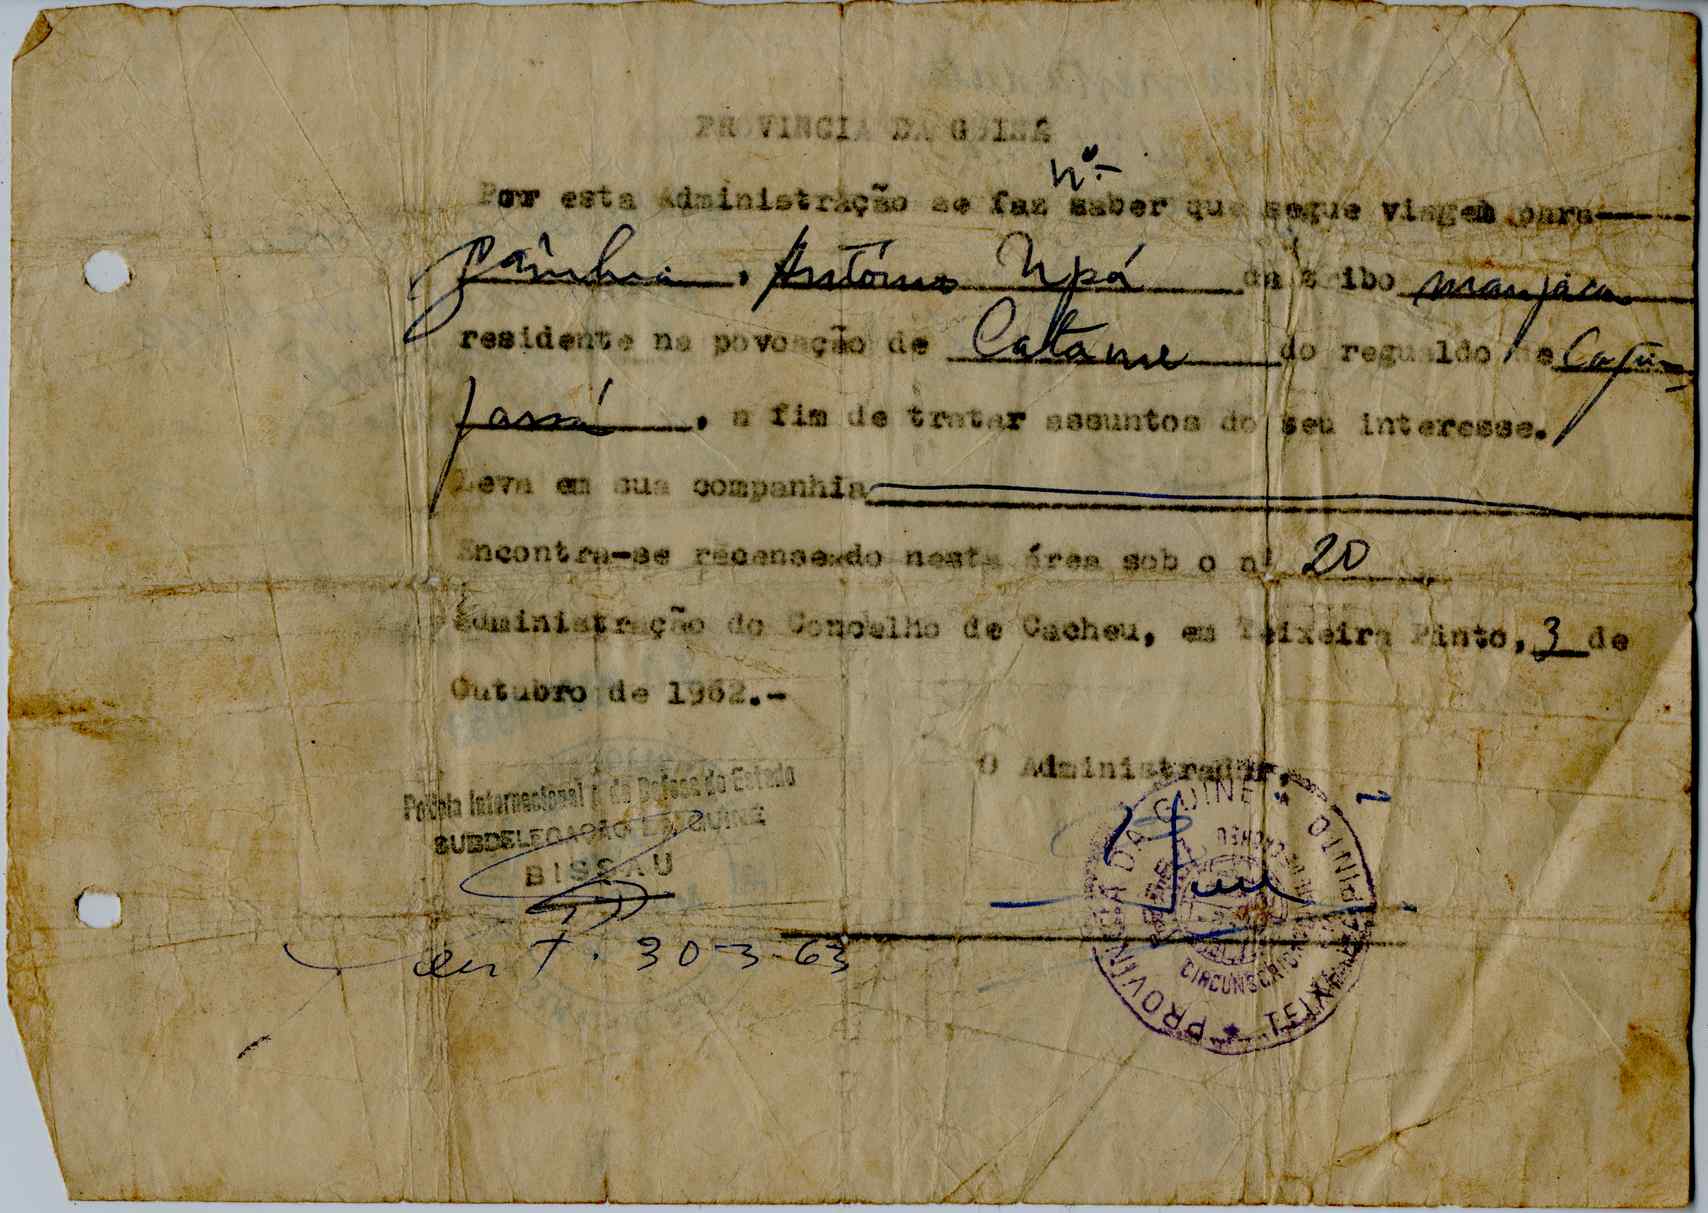 PROVINCIA DA GUINÉ
nº-
Por esta Administração se faz saber que segue viagem para
Gâmbia, António Upá da tribo manjaca
residente na povoação de Catame do regualdo de Caju-
jassá, a fim de tratar assuntos do seu interesse.
Leva em sua companhia
Encontra-se recenseado nesta área sob o nº 20
Administração do Concelho de Cacheu, em Teixeira Pinto, 3 de
Outubro de 1962.-
O Administrador,
Policia Internacional e de Defesa do Estado
SUBDELEGAÇÃO DA GUINÉ
BISSAU
30-3-63
PROVINCIA DA GUINÉ
TEIXEIRA PINTO
CIRCUNSCRIÇÃO
CACHEU